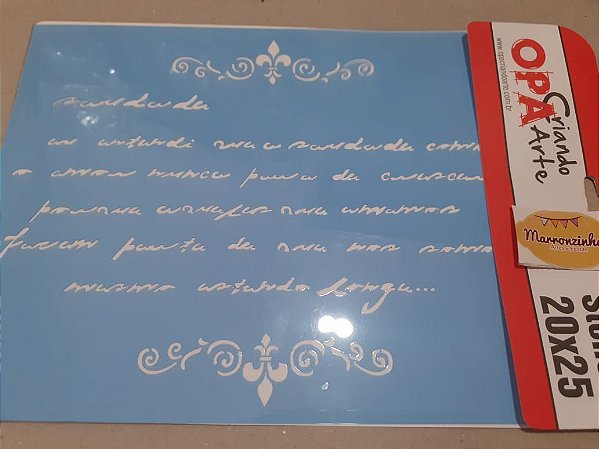 saudade
eu entendi que a saudade
o amor nunca para de crescer
porque aqueles que amamos
fazem parte de que nos
mesmo estando longe...
OPA
Criando
Arte
www.opacriandoarte.com.br
20X25